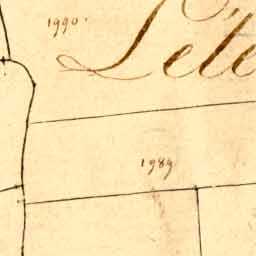 1990.
Lele
1989